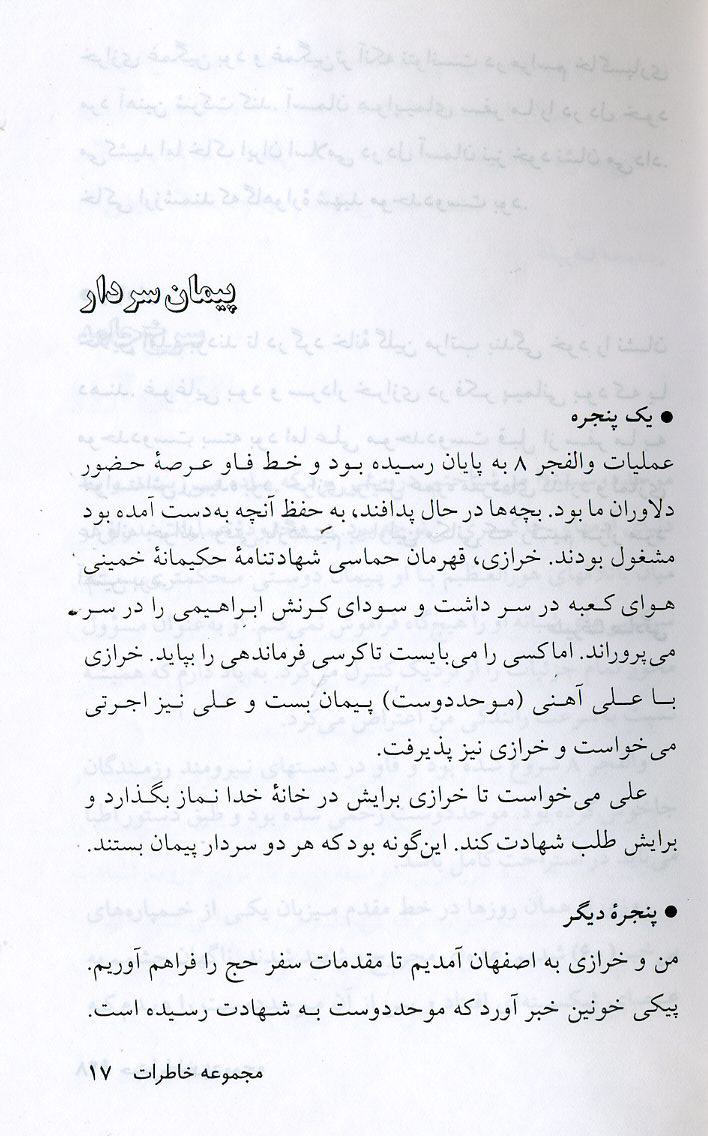 پیمان سردار
● یک پنجره
عملیات والفجر ۸ به پایان رسیده بود و خط فاو عرصهٔ حضور
دلاوران ما بود. بچه‌ها در حال پدافند، به حفظ آنچه به‌دست آمده بود
مشغول بودند. خرازی، قهرمان حماسی شهادتنامهٔ حکیمانهٔ خمینی
هوای کعبه در سر داشت و سودای کرنش ابراهیمی را در سر
می‌پروراند. اما کسی را می‌بایست تا کرسی فرماندهی را بپاید. خرازی
با علی آهنی (موحددوست) پیمان بست و علی نیز اجرتی
می‌خواست و خرازی نیز پذیرفت.
علی می‌خواست تا خرازی برایش در خانهٔ خدا نماز بگذارد و
برایش طلب شهادت کند. این‌گونه بود که هر دو سردار پیمان بستند.
● پنجرهٔ دیگر
من و خرازی به اصفهان آمدیم تا مقدمات سفر حج را فراهم آوریم.
پیکی خونین خبر آورد که موحددوست به شهادت رسیده است.
مجموعه خاطرات ۱۷